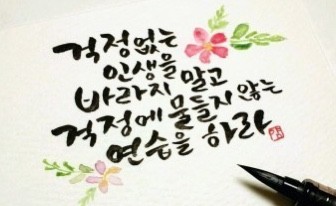 걱정없는
인생을
바라지 말고
걱정에 물들지 않는
연습을 하라